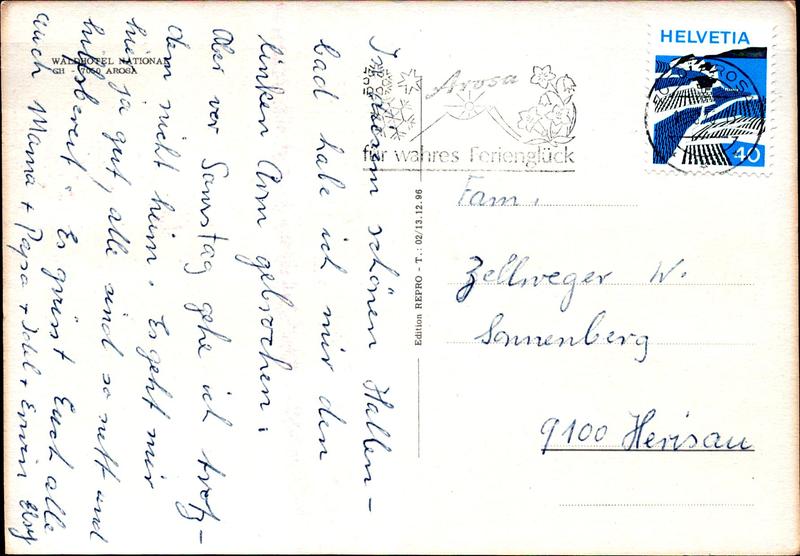 WALDHOTEL NATIONAL
CH - 7050 AROSA
In diesem schönen Hallen-
bad habe ich mir den
linken Arm gebrochen.
Aber vor Samstag gehe ich trotz-
dem nicht heim. Es geht mir
hier ja gut, alle sind so nett und
hilfsbereit. Es grüsst Euch alle
auch Mama + Papa + Idel + Erwin
Edition REPRO - T.: 02/13.12.96
Arosa
für wahres Ferienglück
HELVETIA
AROSA
40
Fam.
Zellweger W.
Sonnenberg
9100 Herisau